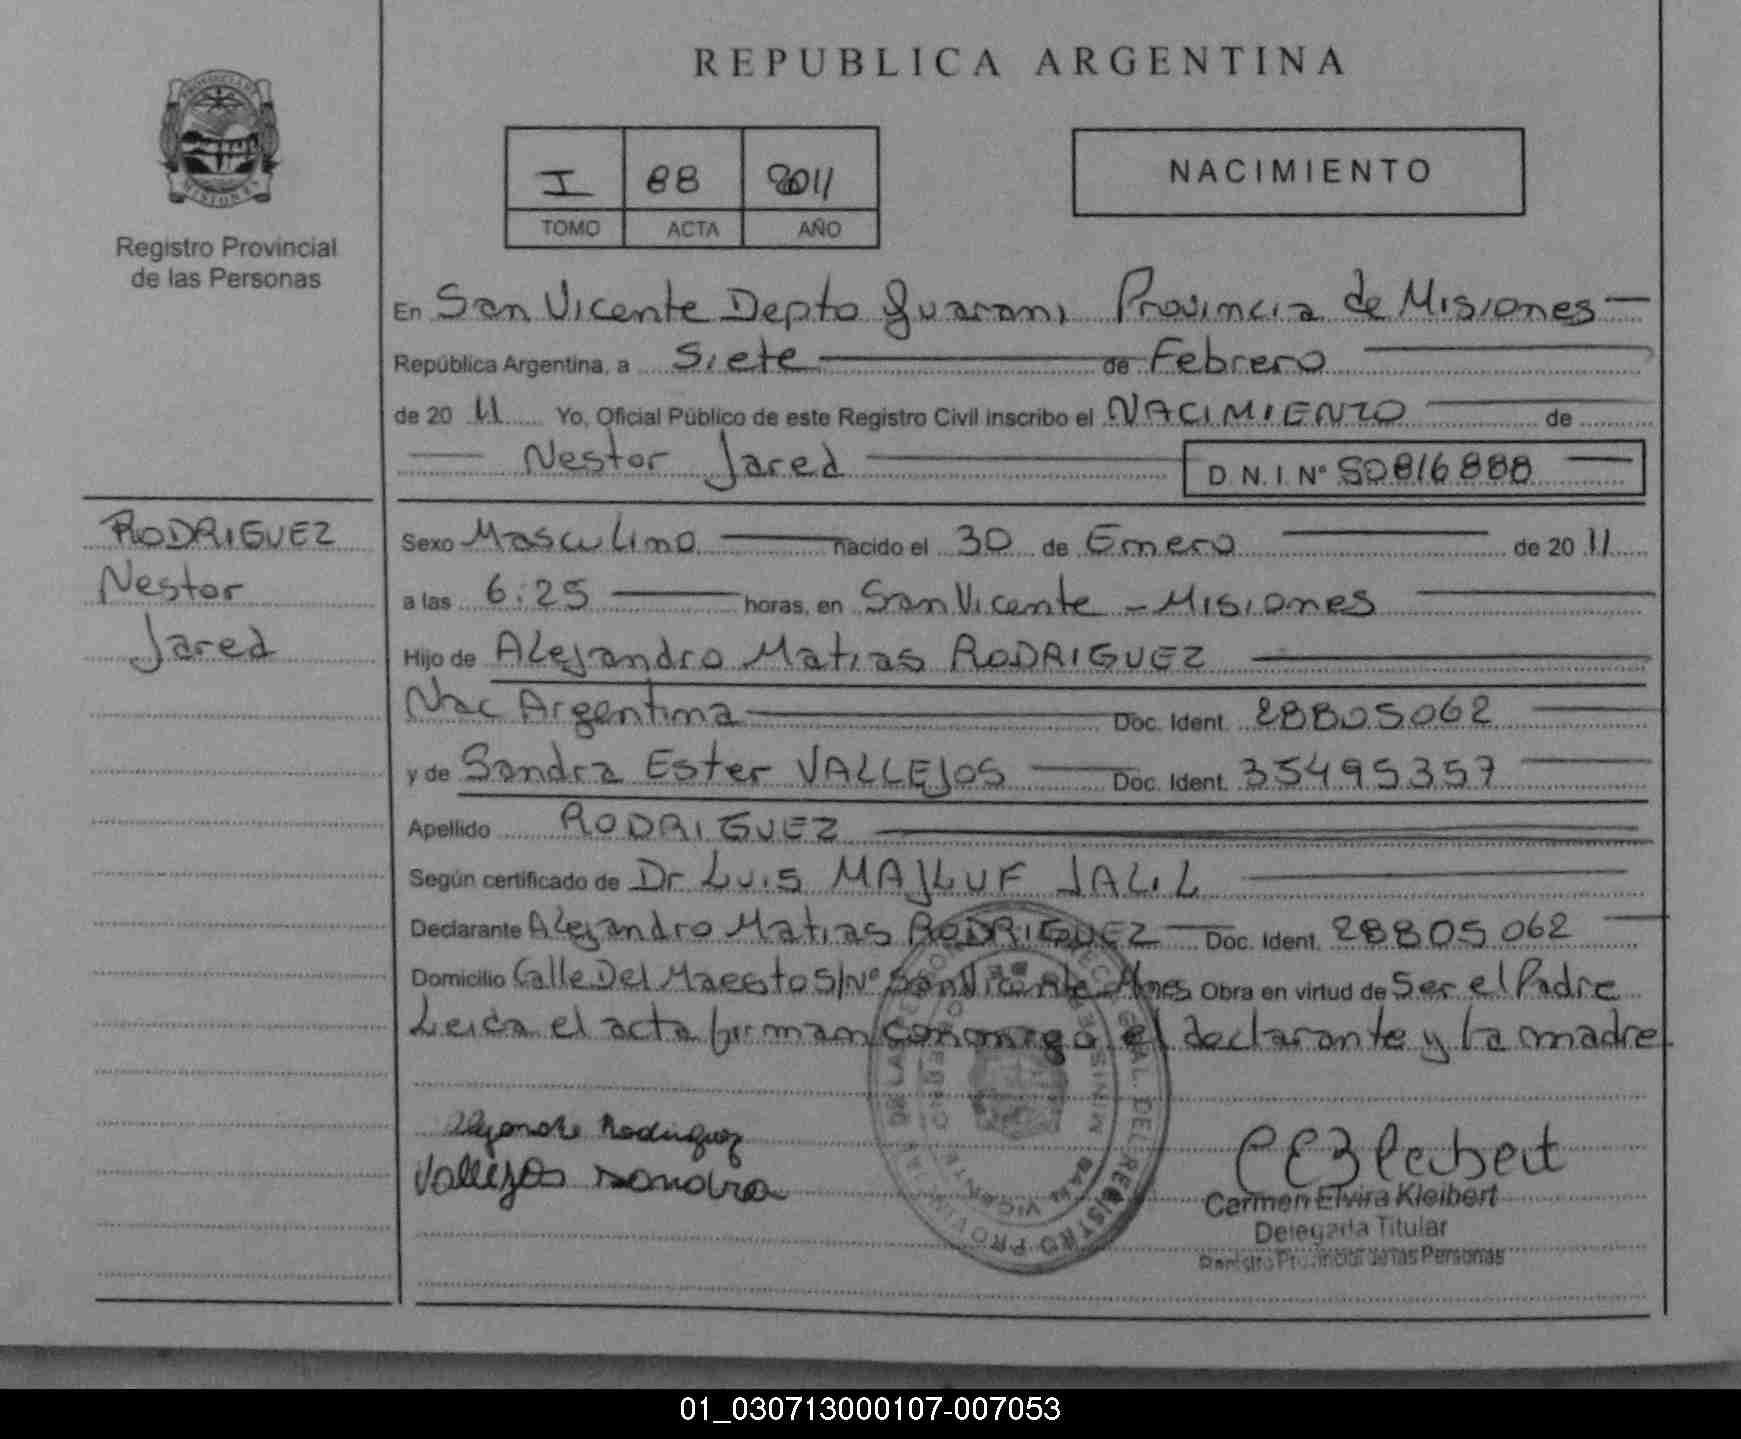 REPUBLICA ARGENTINA
I 88 2011
TOMO ACTA AÑO
NACIMIENTO
Registro Provincial
de las Personas
En San Vicente Depto Guarani Provincia de Misiones
República Argentina, a Siete de Febrero
de 20 11 Yo, Oficial Público de este Registro Civil inscribo el NACIMIENTO de
Nestor Jared D.N.I. Nº 50816888
RODRIGUEZ
Nestor
Jared
Sexo Masculino nacido el 30 de Enero de 20 11
a las 6:25 horas, en San Vicente - Misiones
Hijo de Alejandro Matias RODRIGUEZ
Nac Argentina Doc. Ident. 28805062
y de Sandra Ester VALLEJOS Doc. Ident. 35495357
Apellido RODRIGUEZ
Según certificado de Dr Luis MAJLUF JALIL
Declarante Alejandro Matias RODRIGUEZ Doc. Ident. 28805062
Domicilio Calle Del Maesto S/Nº San Vicente Mnes Obra en virtud de Ser el Padre
Leida el acta firman conmigo el declarante y la madre
Alejandro Rodriguez
Vallejos Sandra
Carmen Elvira Kleibert
Delegada Titular
Registro Provincial de las Personas
SAN VICENTE
01_030713000107-007053